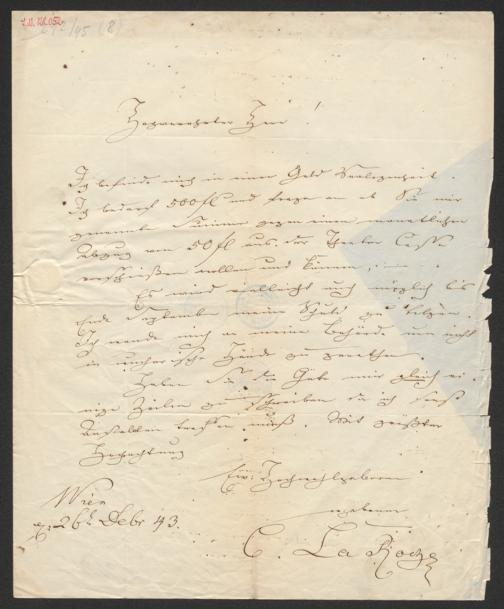 Hochverehrter Herr!
Ich befinde mich in einer Geld Verlegenheit.
Ich bedarf 500 fl und frage an ob Sie mir
genannte Summe gegen einen monatlichen
Abzug von 50 fl aus der Theater Casse
vorschießen wollen und können.
Es wird vielleicht auch möglich bis
Ende September meine Schuld zu tilgen.
Ich wende mich an meine Behörde um nicht
in wucherische Hände zu gerathen.
Haben Sie die Güte mir gleich ei-
nige Zeilen zu schreiben da ich sonst
Anstalten treffen muß. Mit größter
Hochachtung
Euer Hochwohlgeboren
ergebener
Wien
26t Debr 43.
C. La Roche